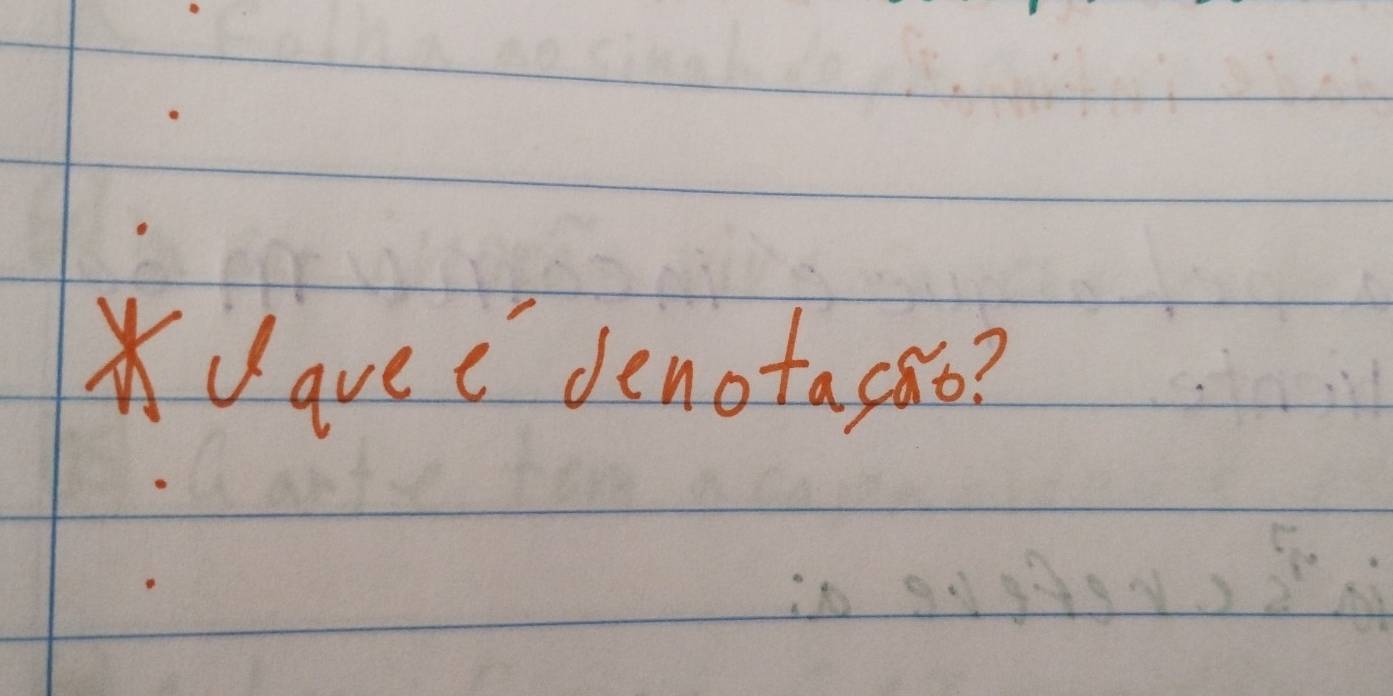 * O que é denotação?